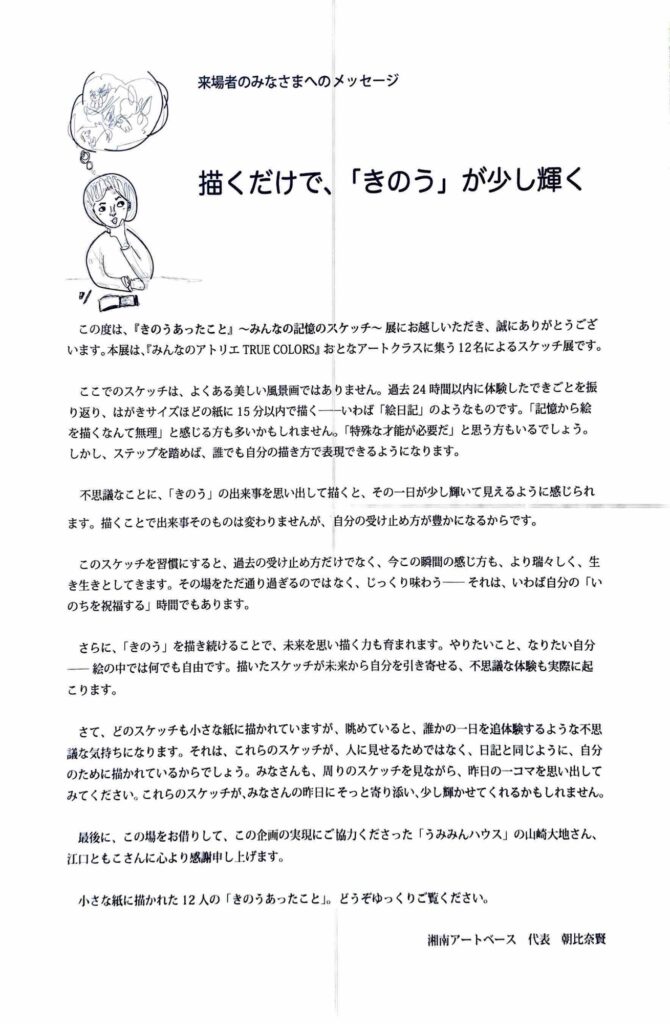 来場者のみなさまへのメッセージ
描くだけで、「きのう」が少し輝く
この度は、『きのうあったこと』〜みんなの記憶のスケッチ〜 展にお越しいただき、誠にありがとうござ
います。本展は、『みんなのアトリエ TRUE COLORS』おとなアートクラスに集う 12名によるスケッチ展です。
ここでのスケッチは、よくある美しい風景画ではありません。過去 24 時間以内に体験したできごとを振
り返り、はがきサイズほどの紙に 15 分以内で描く――いわば「絵日記」のようなものです。「記憶から絵
を描くなんて無理」と感じる方も多いかもしれません。「特殊な才能が必要だ」と思う方もいるでしょう。
しかし、ステップを踏めば、誰でも自分の描き方で表現できるようになります。
不思議なことに、「きのう」の出来事を思い出して描くと、その一日が少し輝いて見えるように感じられ
ます。描くことで出来事そのものは変わりませんが、自分の受け止め方が豊かになるからです。
このスケッチを習慣にすると、過去の受け止め方だけでなく、今この瞬間の感じ方も、より瑞々しく、生
き生きとしてきます。その場をただ通り過ぎるのではなく、じっくり味わう―― それは、いわば自分の「い
のちを祝福する」時間でもあります。
さらに、「きのう」を描き続けることで、未来を思い描く力も育まれます。やりたいこと、なりたい自分
―― 絵の中では何でも自由です。描いたスケッチが未来から自分を引き寄せる、不思議な体験も実際に起
こります。
さて、どのスケッチも小さな紙に描かれていますが、眺めていると、誰かの一日を追体験するような不思
議な気持ちになります。それは、これらのスケッチが、人に見せるためではなく、日記と同じように、自分
のために描かれているからでしょう。みなさんも、周りのスケッチを見ながら、昨日の一コマを思い出して
みてください。これらのスケッチが、みなさんの昨日にそっと寄り添い、少し輝かせてくれるかもしれません。
最後に、この場をお借りして、この企画の実現にご協力くださった「うみみんハウス」の山崎大地さん、
江口ともこさんに心より感謝申し上げます。
小さな紙に描かれた 12 人の「きのうあったこと」。どうぞゆっくりご覧ください。
湘南アートベース 代表 朝比奈賢